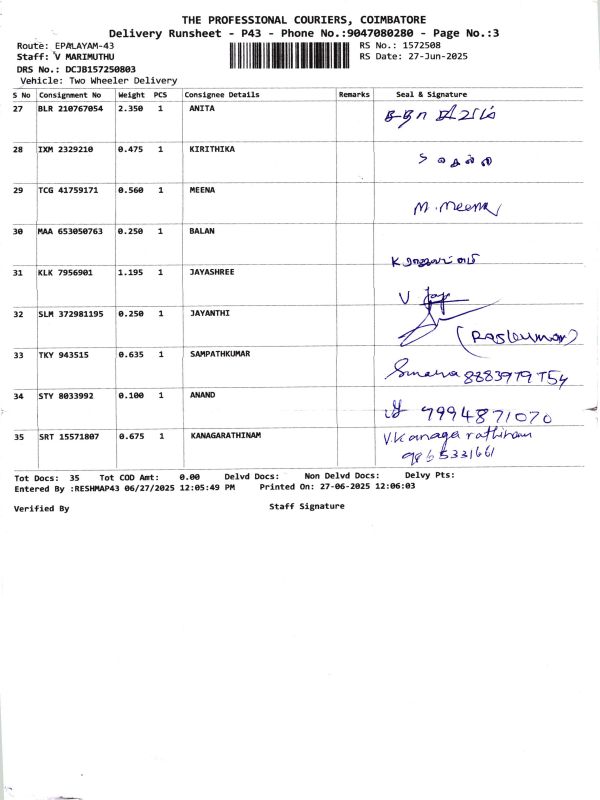 THE PROFESSIONAL COURIERS, COIMBATORE
Delivery Runsheet - P43 - Phone No.:9047080280 - Page No.:3
Route: EPALAYAM-43 RS No.: 1572508
Staff: V MARIMUTHU RS Date: 27-Jun-2025
DRS No.: DCJB157250803
Vehicle: Two Wheeler Delivery
S No Consignment No Weight PCS Consignee Details Remarks Seal & Signature
27 BLR 210767054 2.350 1 ANITA
28 IXM 2329210 0.475 1 KIRITHIKA
29 TCG 41759171 0.560 1 MEENA M. Meena
30 MAA 653050763 0.250 1 BALAN
31 KLK 7956901 1.195 1 JAYASHREE
32 SLM 372981195 0.250 1 JAYANTHI
33 TKY 943515 0.635 1 SAMPATHKUMAR
34 STY 8033992 0.100 1 ANAND 9994871070
35 SRT 15571807 0.675 1 KANAGARATHINAM V.Kanagarathinam
9865331661
Tot Docs: 35 Tot COD Amt: 0.00 Delvd Docs: Non Delvd Docs: Delvy Pts:
Entered By :RESHMAP43 06/27/2025 12:05:49 PM Printed On: 27-06-2025 12:06:03
Verified By Staff Signature